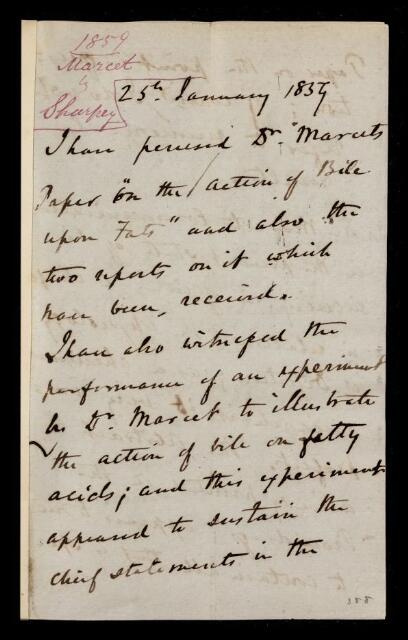 1859
Marcet
by
Sharpey
25th January 1859
I have perused Dr. Marcet's
Paper "on the action of Bile
upon Fats" and also the
two reports on it which
have been received.
I have also witnessed the
performance of an experiment
by Dr. Marcet to illustrate
the action of bile on fatty
acids; and this experiment
appeared to sustain the
chief statements in the
188